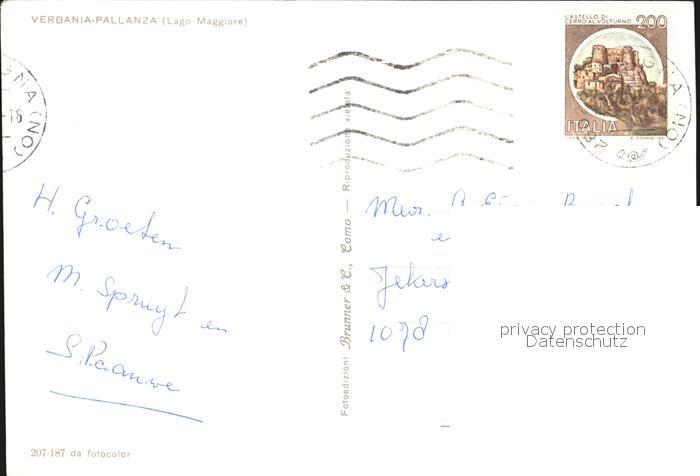 VERBANIA-PALLANZA (Lago Maggiore)
CASTELLO DI
CERRO AL VOLTURNO 200
ITALIA
GNA (NO)
-16
ONA (NO)
H. Groeten
M. Spruyt en
Fotoedizioni Brunner & C., Como — Riproduzione vietata
Mevr.
e
1078
privacy protection
Datenschutz
207-187 da fotocolor